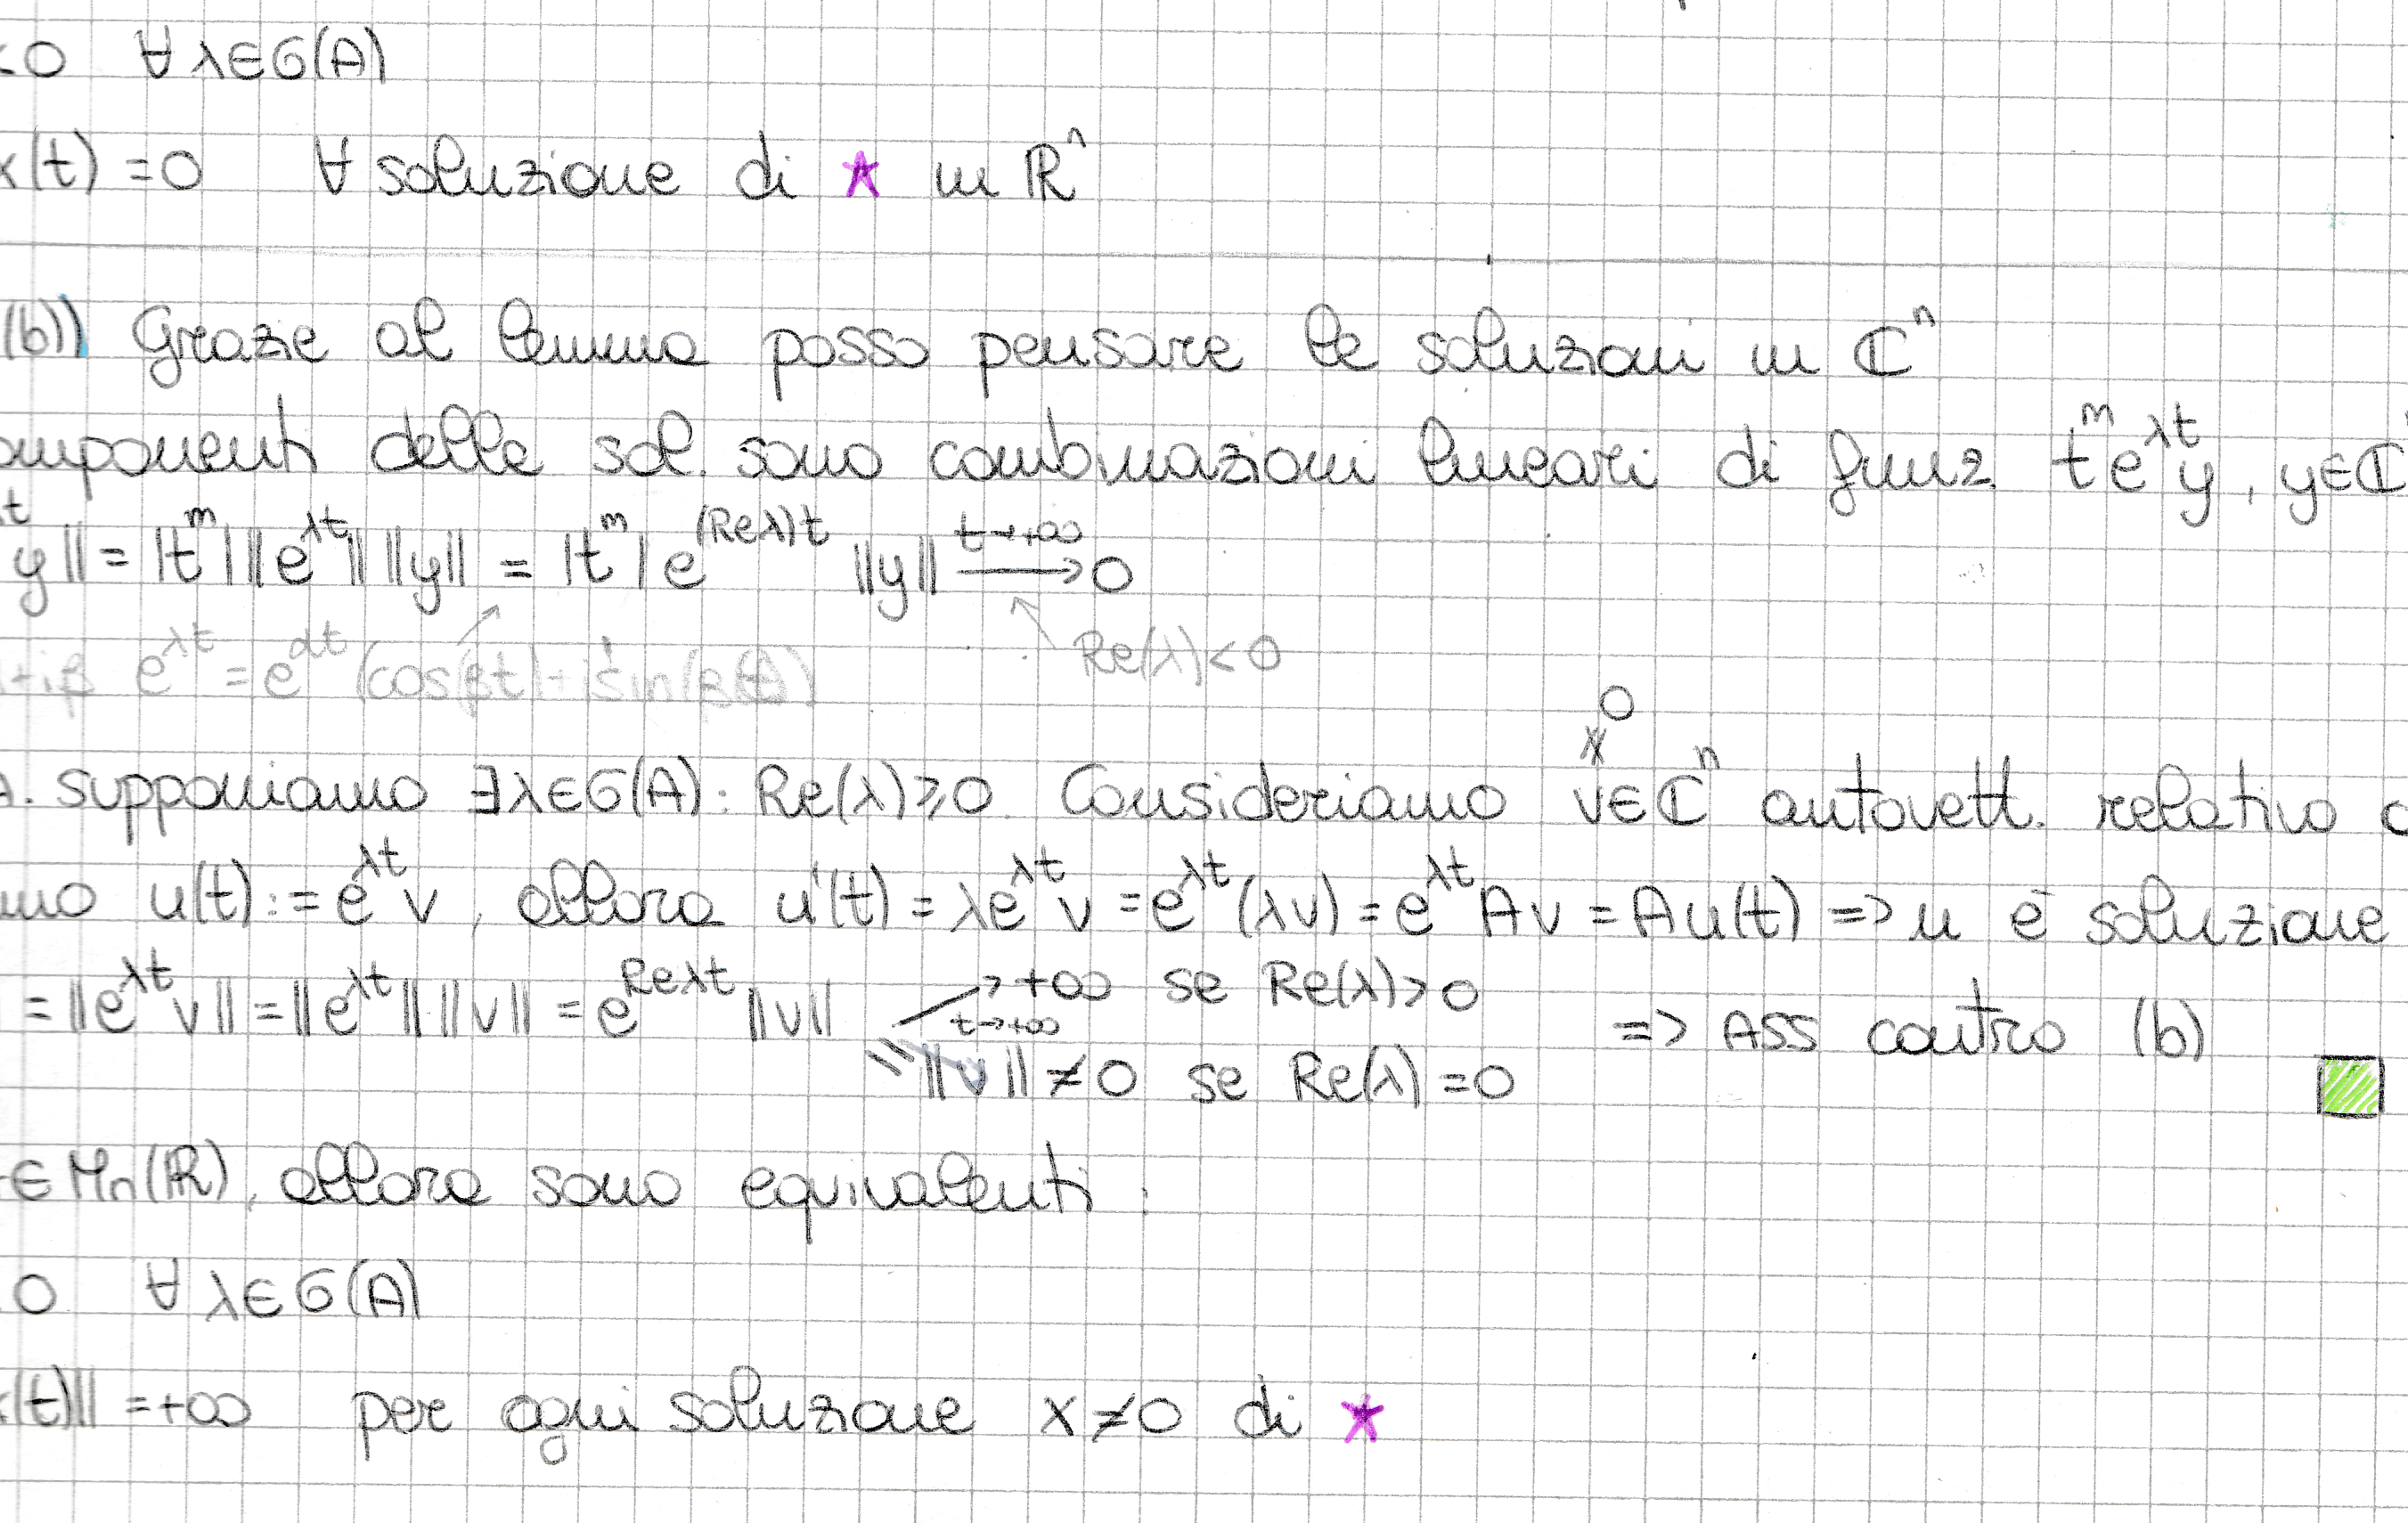 <0 ∀ λ∈σ(A)
x(t) = 0 ∀ soluzione di ★ in ℝⁿ
(b)) Grazie al lemma posso pensare le soluzioni in ℂⁿ
omponenti delle sol. sono combinazioni lineari di funz. t^m e^{λt} y, y∈ℂ
t y|| = |t^m| ||e^{λt}|| ||y|| = |t^m| e^{(Reλ)t} ||y|| →^{t→+∞} 0
+iβ e^{λt} = e^{αt} (cos(βt)+i sin(βt)) Re(λ)<0
A. supponiamo ∃λ∈σ(A): Re(λ)≥0. Consideriamo 0 ≠ v∈ℂⁿ autovett. relativo a
mo u(t) := e^{λt} v, allora u'(t) = λe^{λt} v = e^{λt} (λv) = e^{λt} Av = Au(t) => u è soluzione
= ||e^{λt} v|| = ||e^{λt}|| ||v|| = e^{Reλt} ||v|| → +∞ se Re(λ)>0
t→+∞ => ASS contro (b)
= ||v|| ≠ 0 se Re(λ) = 0
∈ Mn(ℝ), allora sono equivalenti:
0 ∀ λ∈σ(A)
x(t)|| = +∞ per ogni soluzione x≠0 di ★